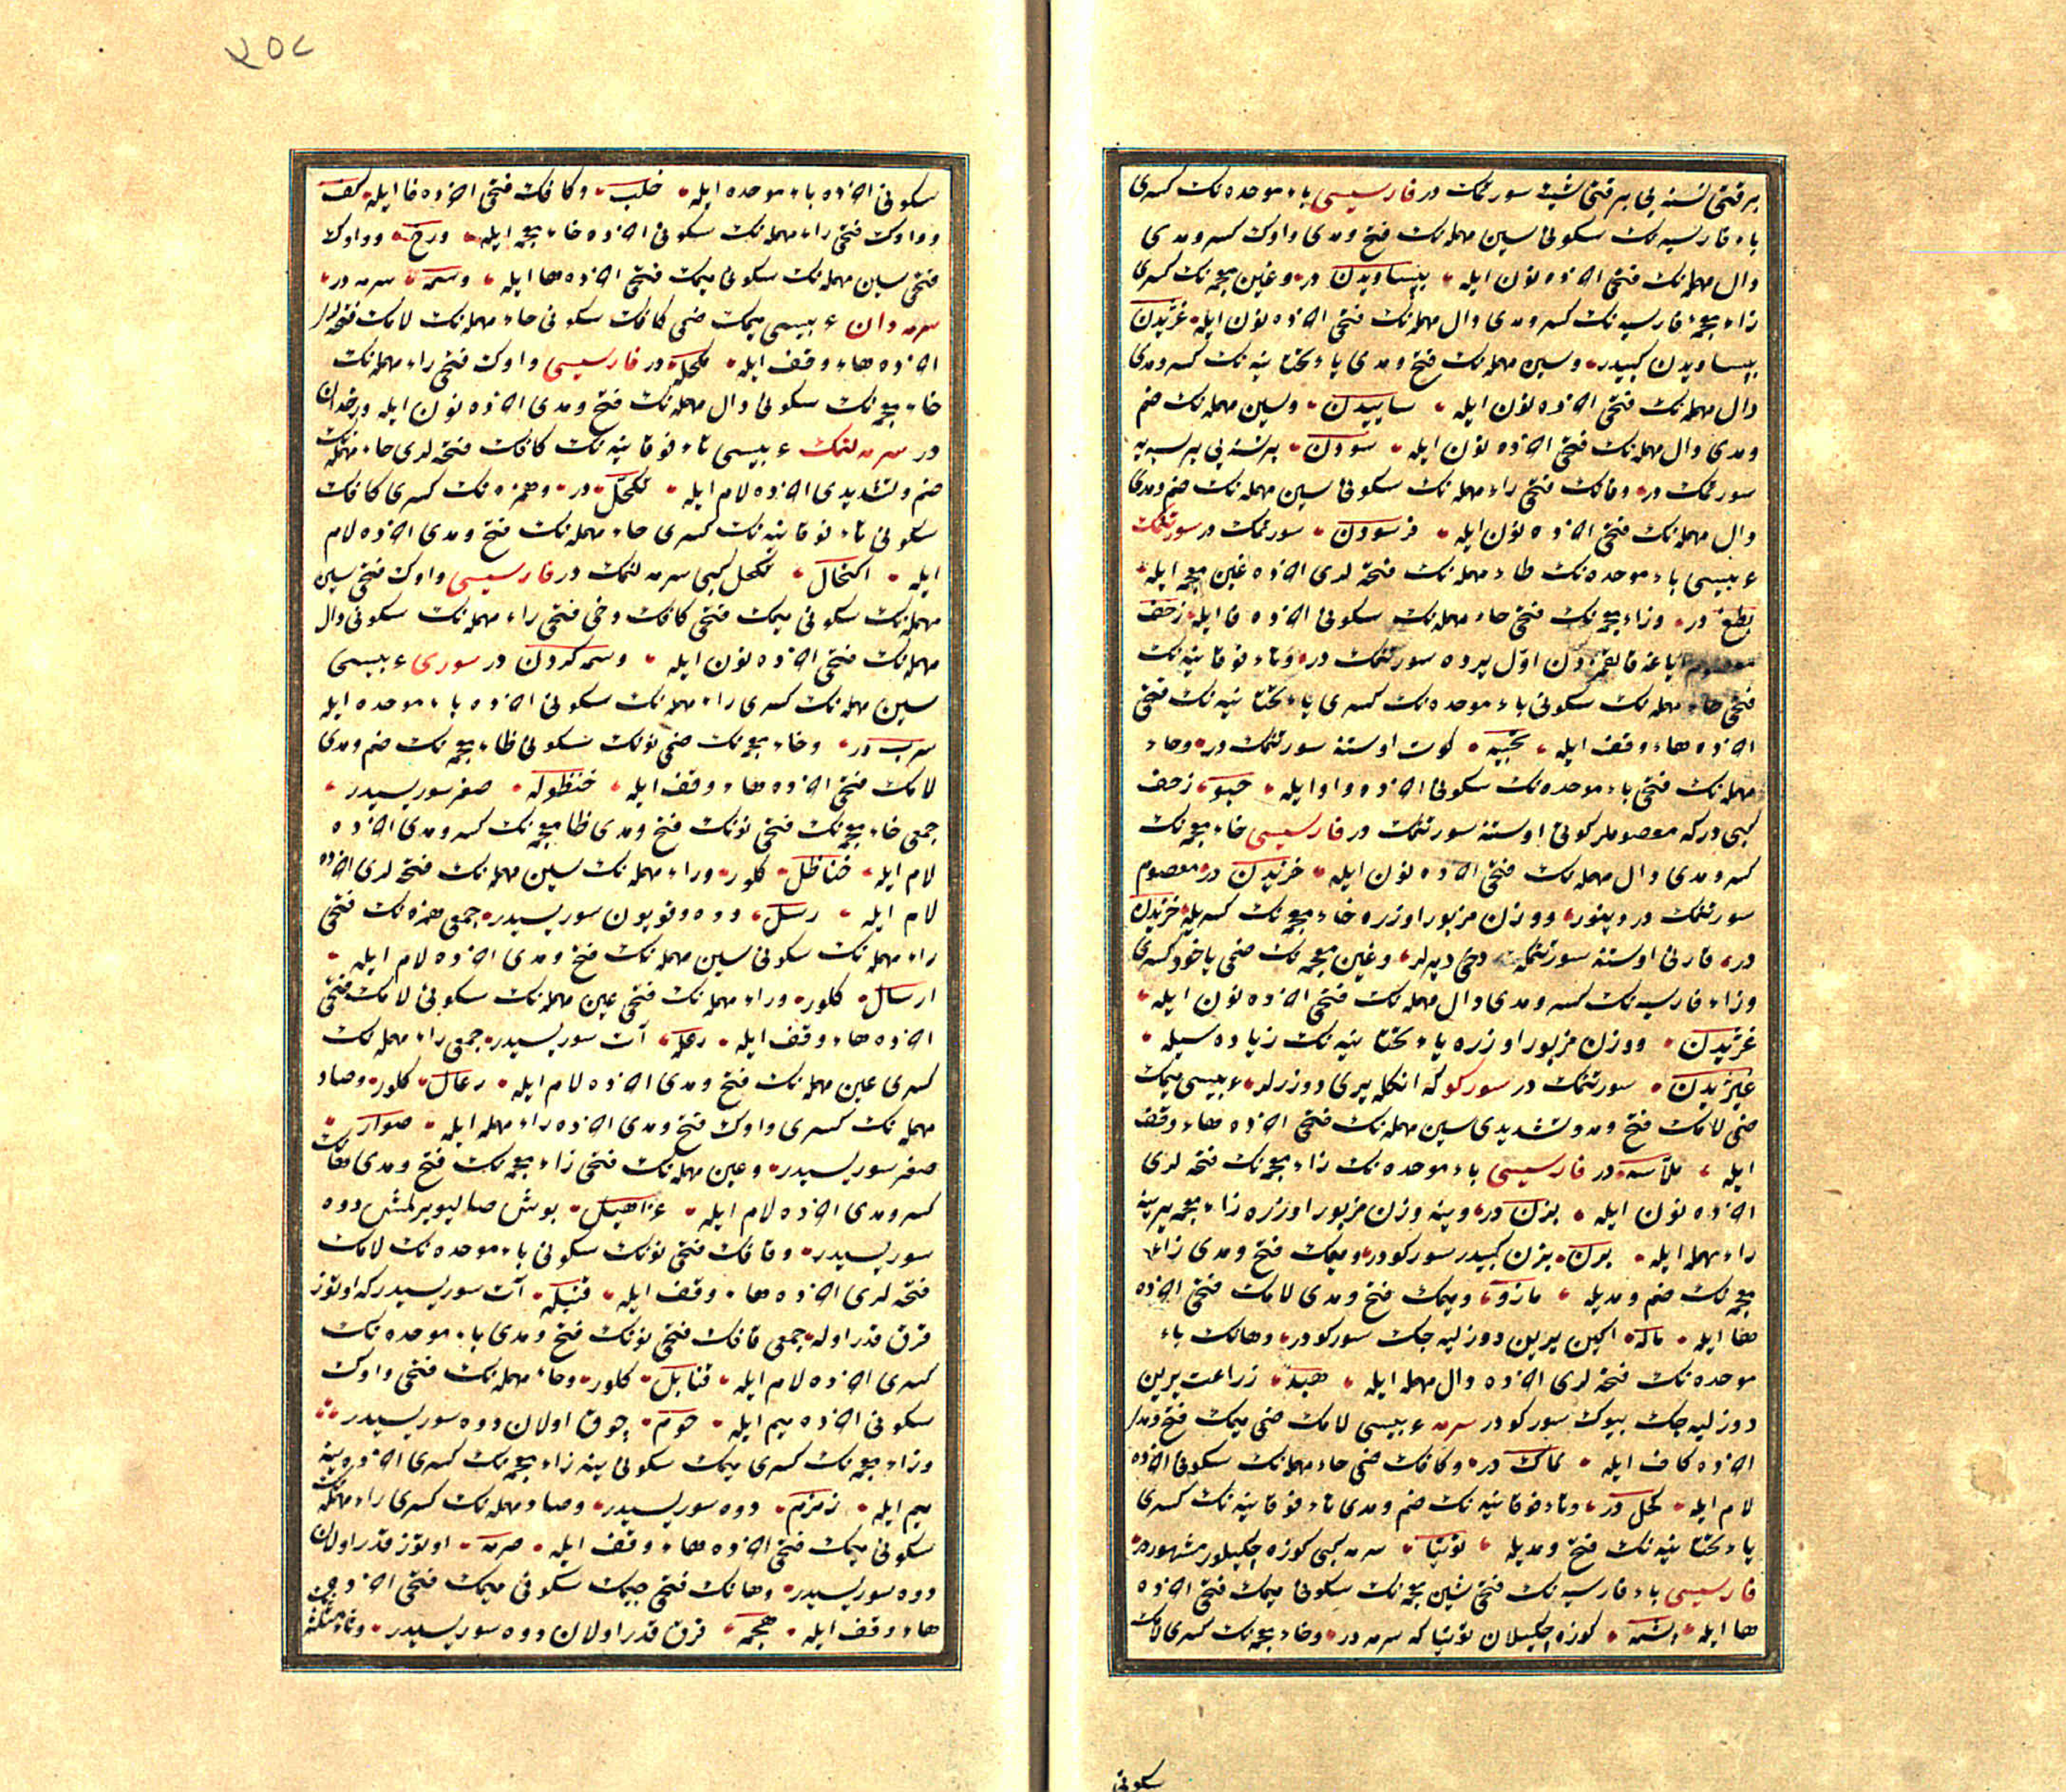 بر قتی نسنه یی بر قتی شیئه سورتمك در فارسیسی باء موحده نك كسری
باء فارسیه نك سكونی سین مهمله نك فتح ومدی واوك كسر ومدی
دال مهمله نك فتحی اخ‍ذه نون ایله بپساویدن در وغین معجمه نك كسری
زاء معجمهٔ فارسیه نك كسر ومدی دال مهمله نك فتحی اخ‍ذه نون ایله غژیدن
بپساویدن كبیدر وسین مهمله نك فتح ومدی یاء تحتانیه نك كسر ومدی
دال مهمله نك فتحی اخ‍ذه نون ایله ساییدن وسین مهمله نك ضم
ومدی دال مهمله نك فتحی اخ‍ذه نون ایله سودن بر نسنه یی بر یره
سورتمك در وفانك فتحی راء مهمله نك سكونی سین مهمله نك ضم ومدی
دال مهمله نك فتحی اخ‍ذه نون ایله فرسودن سورتمك در سورتنمك
عربیسی باء موحده نك طاء مهمله نك فتحه لری اخ‍ذه غین معجمه ایله
بطغ در وزاء معجمه نك فتحی حاء مهمله نك سكونی اخ‍ذه فا ایله زحف
معصوم ایاغه قالقمزدن اول یرده سورتنمك در وتاء فوقانیه نك
فتحی حاء مهمله نك سكونی باء موحده نك كسری یاء تحتانیه نك فتحی
اخ‍ذه هاء وقف ایله تحبیه كوت اوستنه سورتنمك در وحاء
مهمله نك فتحی باء موحده نك سكونی اخ‍ذه واو ایله حبو زحف
كبی در كه معصوملر كوتی اوستنه سورتنمك در فارسیسی خاء معجمه نك
كسر ومدی دال مهمله نك فتحی اخ‍ذه نون ایله خزیدن در معصوم
سورتنمك در دینور ووزن مزبور اوزره خاء معجمه نك كسریله خزیدن
در قارنی اوستنه سورتنمكه دخی دیرلر وغین معجمه نك ضمی یاخود كسری
وزاء فارسیه نك كسر ومدی دال مهمله نك فتحی اخ‍ذه نون ایله
غژیدن ووزن مزبور اوزره یاء تحتانیه نك زیاده سیله
غیژیدن سورتنمك در سوركو كه انكله یری دوزرلر عربیسی میمك
ضمی لامك فتح ومد وتشدیدی سین مهمله نك فتحی اخ‍ذه هاء وقف
ایله ملاسه در فارسیسی باء موحده نك زاء معجمه نك فتحه لری
اخ‍ذه نون ایله بزن در وینه وزن مزبور اوزره زاء معجمه یرینه
راء مهمله ایله برن بزن كبیدر سوركودر ومیمك فتح ومدی زاء
معجمه نك ضم ومدیله مازو ومیمك فتح ومدی لامك فتحی اخ‍ذه
ها ایله ماله اكین یرین دوزلیه جك سوركودر وهانك باء
موحده نك فتحه لری اخ‍ذه دال مهمله ایله هبد زراعت یرین
دوزلیه جك بیوك سوركودر سرمه عربیسی لامك ضمی میمك فتح ومدی
اخ‍ذه كاف ایله لماك در وكافك ضمی حاء مهمله نك سكونی اخ‍ذه
لام ایله كحل در وتاء فوقانیه نك ضم ومدی تاء فوقانیه نك كسری
یاء تحتانیه نك فتح ومدیله توتیا سرمه كبی كوزه چكیلور مشهوردر
فارسیسی باء فارسیه نك فتحی شین معجمه نك سكونی میمك فتحی اخ‍ذه
ها ایله پشمه كوزه چكیلان توتیا كه سرمه در وخاء معجمه نك كسری لامك
سكونی
٣٥٨
سكونی اخ‍ذه باء موحده ایله خلب وكافك فتحی اخ‍ذه فا ایله كف
وواوك فتحی راء مهمله نك سكونی اخ‍ذه خاء معجمه ایله ورخ وواوك
فتحی سین مهمله نك سكونی میمك فتحی اخ‍ذه ها ایله وسمه سرمه در
سرمه دان عربیسی میمك ضمی كافك سكونی حاء مهمله نك لامك فتحه لری
اخ‍ذه هاء وقف ایله مكحله در فارسیسی واوك فتحی راء مهمله نك
خاء معجمه نك سكونی دال مهمله نك فتح ومدی اخ‍ذه نون ایله ورخدان
در سرمه لنمك عربیسی تاء فوقانیه نك كافك فتحه لری حاء مهمله نك
ضم وتشدیدی اخ‍ذه لام ایله تكحل در وهمزه نك كسری كافك
سكونی تاء فوقانیه نك كسری حاء مهمله نك فتح ومدی اخ‍ذه لام
ایله اكتحال تكحل كبی سرمه لنمك در فارسیسی واوك فتحی سین
مهمله نك سكونی میمك فتحی كافك دخی فتحی راء مهمله نك سكونی دال
مهمله نك فتحی اخ‍ذه نون ایله وسمه كردن در سوری عربیسی
سین مهمله نك كسری راء مهمله نك سكونی اخ‍ذه باء موحده ایله
سرب در وخاء معجمه نك ضمی نونك سكونی ظاء معجمه نك ضم ومدی
لامك فتحی اخ‍ذه هاء وقف ایله خنظوله صغر سوریسیدر
جمعی خاء معجمه نك فتحی نونك فتح ومدی ظا معجمه نك كسر ومدی اخ‍ذه
لام ایله خناظل كلور وراء مهمله نك سین مهمله نك فتحه لری اخ‍ذه
لام ایله رسل دوه وقویون سوریسیدر جمعی همزه نك فتحی
راء مهمله نك سكونی سین مهمله نك فتح ومدی اخ‍ذه لام ایله
ارسال كلور وراء مهمله نك فتحی عین مهمله نك سكونی لامك فتحی
اخ‍ذه هاء وقف ایله رعله آت سوریسیدر جمعی راء مهمله نك
كسری عین مهمله نك فتح ومدی اخ‍ذه لام ایله رعال كلور وصاد
مهمله نك كسری واوك فتح ومدی اخ‍ذه راء مهمله ایله صوار
صغر سوریسیدر وعین مهمله نك فتحی زاء معجمه نك فتح ومدی هانك
كسر ومدی اخ‍ذه لام ایله عزاهیل بوش صالیویرلمش دوه
سوریسیدر وقافك فتحی نونك سكونی باء موحده نك لامك
فتحه لری اخ‍ذه هاء وقف ایله قنبله آت سوریسیدر كه اوتوز
قرق قدر اوله جمعی قافك فتحی نونك فتح ومدی باء موحده نك
كسری اخ‍ذه لام ایله قنابل كلور وحاء مهمله نك فتحی واوك
سكونی اخ‍ذه میم ایله حوم چوق اولان دوه سوریسیدر
وزاء معجمه نك كسری میمك سكونی ینه زاء معجمه نك كسری اخ‍ذه ینه
میم ایله زمزم دوه سوریسیدر وصاد مهمله نك كسری راء مهمله نك
سكونی میمك فتحی اخ‍ذه هاء وقف ایله صرمه اوتوز قدر اولان
دوه سوریسیدر وهانك فتحی جیمك سكونی میمك فتحی اخ‍ذه
هاء وقف ایله هجمه قرق قدر اولان دوه سوریسیدر وثاء مثلثه نك